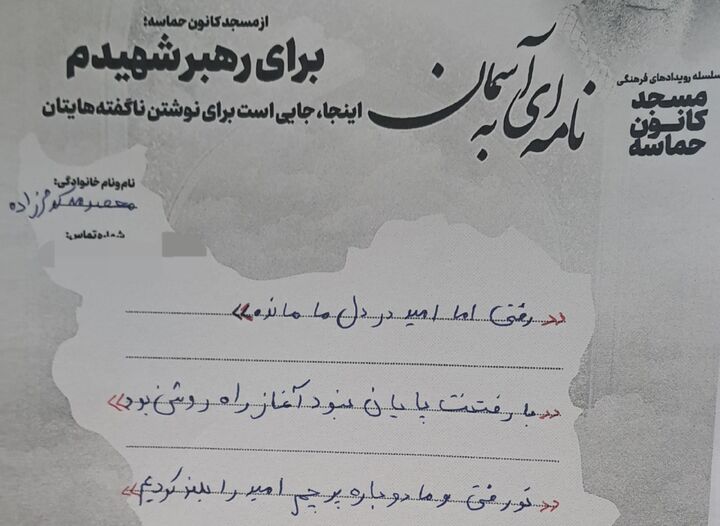 از مسجد کانون حماسه؛
برای رهبر شهیدم
اینجا، جایی است برای نوشتن ناگفته‌هایتان
نامه‌ای به آسمان
سلسله رویدادهای فرهنگی
مسجد
کانون
حماسه
نام و نام خانوادگی:
معصومه
شماره تماس:
«رفتی اما امید در دل ما مانده»
«با رفتنت پایان نبود آغاز راه روشن بود»
«تو رفتی و ما دوباره پرچم امید را بلند کردیم»